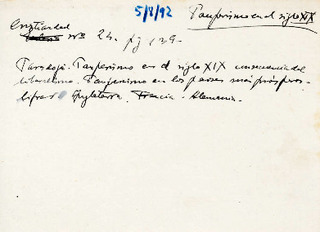 5/8/92
Pauperismo en el siglo XIX
Cristiandad
nº 24. pg 139.
Paradoja. Pauperismo en el siglo XIX consecuencia del
liberalismo. Pauperismo en los países más prósperos.
Cifras Inglaterra. Francia. Alemania.